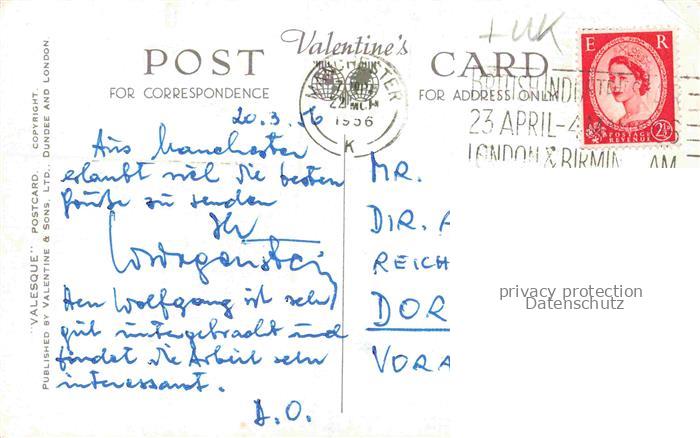 + UK
Valentine's
POST CARD
FOR CORRESPONDENCE
FOR ADDRESS ONLY
"VALESQUE" POSTCARD. COPYRIGHT.
PUBLISHED BY VALENTINE & SONS, LTD., DUNDEE AND LONDON.
MANCHESTER
1956
K
23 APRIL-4
LONDON & BIRMIN AM
E R
POSTAGE
REVENUE
2½
20.3.56
Aus Manchester
erlaubt sich die besten
Grüße zu senden
Ihr
Den Wolfgang ist sehr
gut untergebracht und
findet die Arbeit sehr
interessant.
D.O.
MR.
DIR. A
REICH
DOR
VORA
privacy protection
Datenschutz